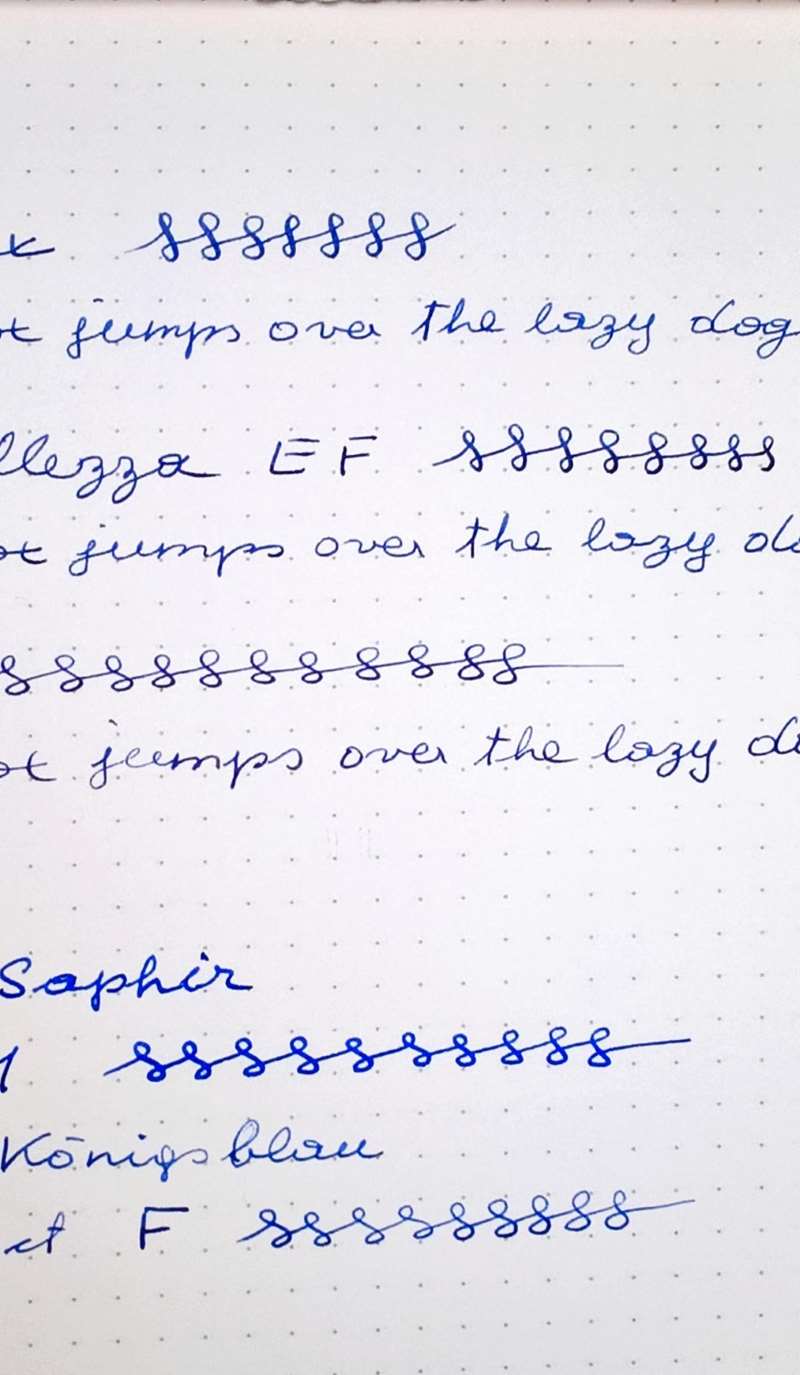 jumps over the lazy dog
llezza EF
jumps over the lazy
jumps over the lazy
Saphir
Königsblau
et F